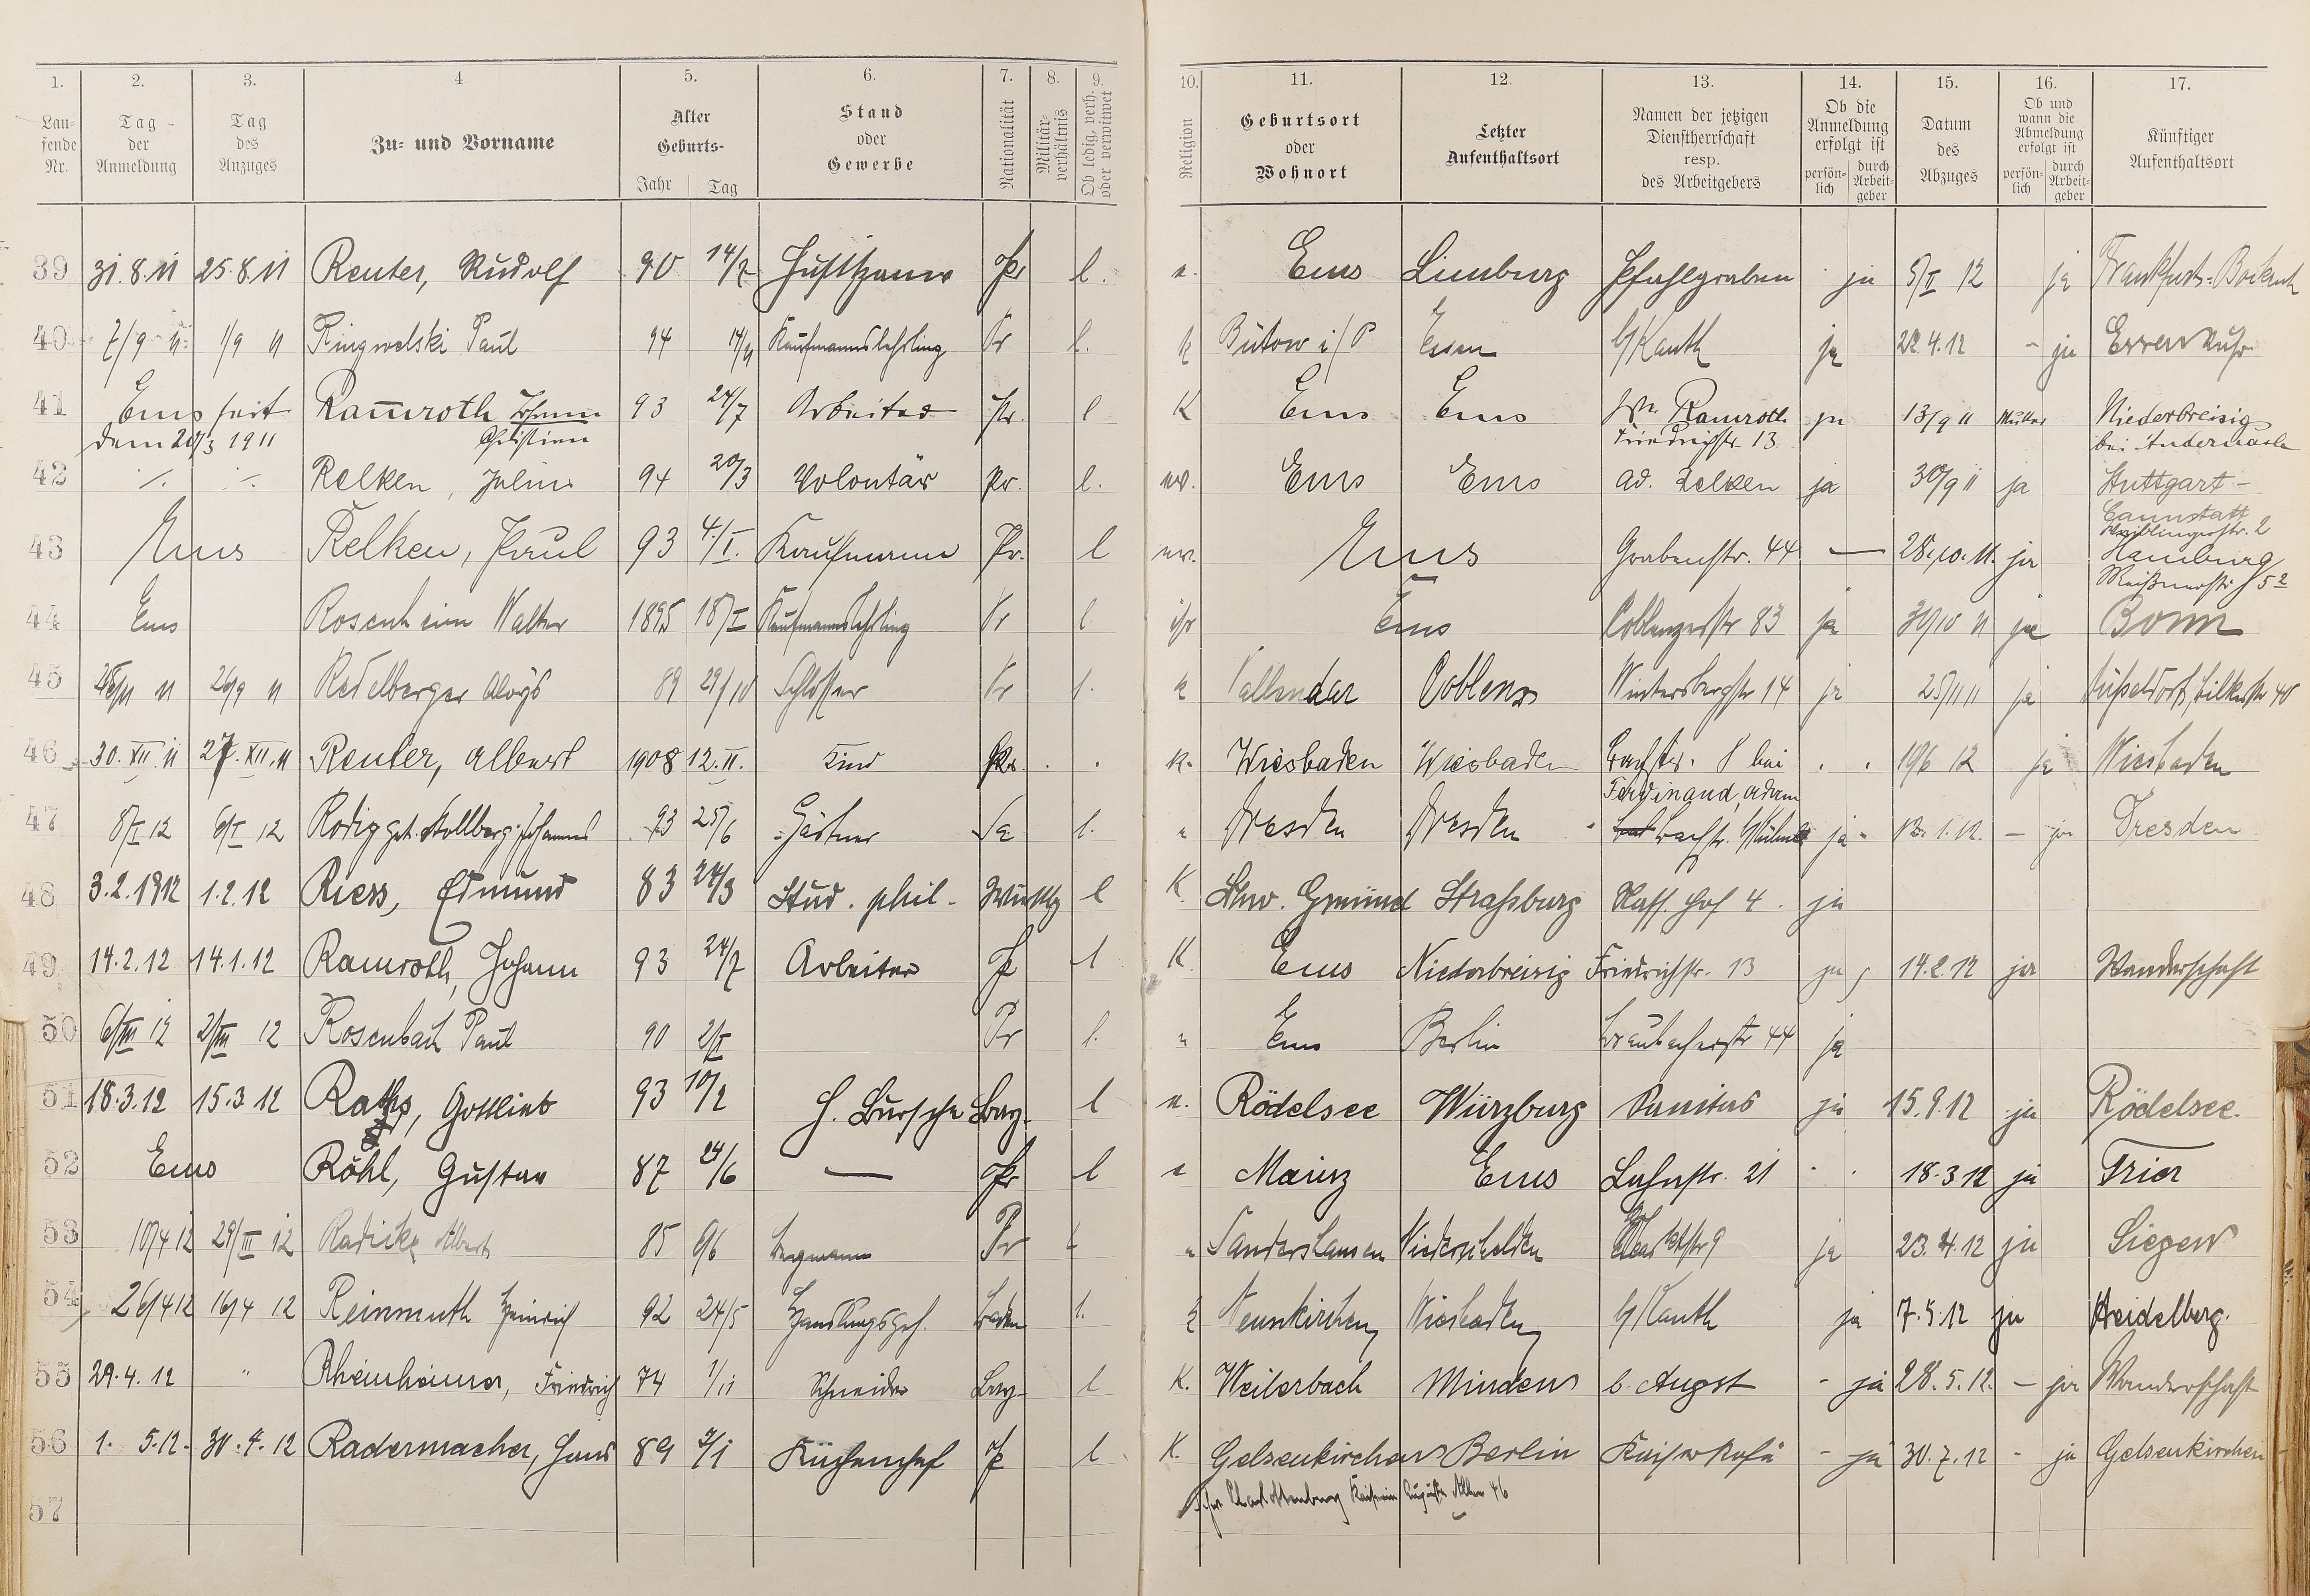 1. 2. 3. 4. 5. 6. 7. 8. 9. 10. 11. 12. 13. 14. 15. 16. 17.
Laufende Nr.
Tag der Anmeldung
Tag des Anzuges
Zu- und Vorname
Alter Geburts- Jahr Tag
Stand oder Gewerbe
Nationalität
Militärverhältnis
Ob ledig, verh. oder verwitwet
Religion
Geburtsort oder Wohnort
Letzter Aufenthaltsort
Namen der jetzigen Dienstherrschaft resp. des Arbeitgebers
Ob die Anmeldung erfolgt ist persönlich durch Arbeitgeber
Datum des Abzuges
Ob und wann die Abmeldung erfolgt ist persönlich durch Arbeitgeber
Künftiger Aufenthaltsort
39 31.8.11 25.8.11 Reuter, Rudolf 90 14/7 Pr l. Ems Limburg Pfahlgraben ja 5/II 12 ja
40 7/9 11 1/9 11 Ringwelski Paul 94 14/4 Kaufmannslehrling Pr l. k Bütow i/P Essen b/Kauth ja 22.4.12 - ja
41 Ems seit Ramroth Johann 93 24/7 Arbeiter Pr. l K Ems Ems Ww. Ramroth ja 13/9 11 Mutter Niederbreisig
dem 20/3 1911 Christian Friedrichstr. 13 bei Andernach
42 Relken, Julius 94 20/3 Volontär Pr. l. Ems Ems Ad. Relken ja 30/9 11 ja Stuttgart-
Cannstatt
43 Ems Relken, Paul 93 4./I. Kaufmann Pr. l Ems Grabenstr. 44 — 28.10.11. ja Hamburg
44 Ems Rosenheim Walter 1895 18/I Kaufmannslehrling Pr l. isr Ems Coblenzerstr 83 ja 30/10 11 ja Bonn
45 11 26/9 11 Redelberger Aloys 89 29/10 Schlosser Pr l. k Vallendar Coblenz Wintersbergstr 14 ja 25/11 11 ja
46 30.XII.11 27.XII.11 Reuter, Albert 1908 12.II. Kind Pr. k. Wiesbaden Wiesbaden Bachstr. 8 bei 12 ja Wiesbaden
Ferdinand Adam
47 8/I 12 6/I 12 Rodig gt. Stollberg Johannes 93 25/6 Gärtner Sa l. Dresden Dresden Bachstr. ja - ja Dresden
48 3.2.1912 1.2.12 Riess, Edmund 83 24/3 Stud. phil. l K Schw. Gmünd Strassburg Nass. Hof 4. ja
49 14.2.12 14.1.12 Ramroth, Johann 93 24/7 Arbeiter P l K Ems Niederbreisig Friedrichstr. 13 ja 14.2.12 ja Wanderschaft
50 6/III 12 2/III 12 Rosenbach Paul 90 2/I Pr l. Ems Berlin Braubacherstr 44 ja
51 18.3.12 15.3 12 Gottlieb 93 10/2 H. Bursche Bay. l Rödelsee Würzburg Sanitas ja 15.9.12 ja Rödelsee.
52 Ems Röhl, Gustav 87 24/6 — Pr l Mainz Ems Lahnstr. 21 18.3 12 ja Trier
53 10/4 12 29/III 12 Radicke Albert 85 6/6 Bergmann Pr l Niederschelden ja 23.4.12 ja Siegen
54 26/4 12 16/4 12 Reinmuth Heinrich 92 24/5 Handlungsgeh. Baden l. k Neunkirchen Wiesbaden b/Kauth ja 7.5.12 ja Heidelberg.
55 29.4.12 " Rheinheimer, Friedrich 74 1/11 Schneider Bay. l K. Weilerbach Minden b. August - ja 28.5.12. - ja Wanderschaft
56 1. 5.12. 30.4.12 Radermacher, Hans 89 Küchenchef P l K. Gelsenkirchen Berlin - ja 30.7.12 - ja Gelsenkirchen
Charlottenburg Kaiserin Augusta Allee 46
57